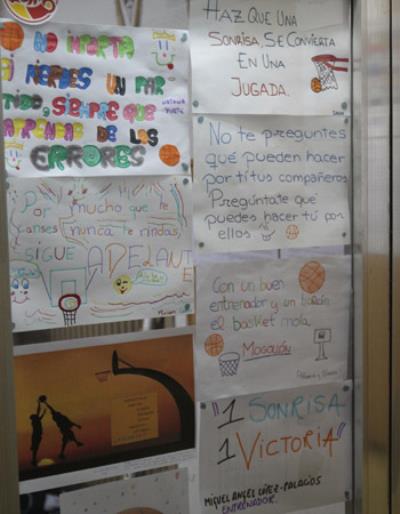 NO IMPORTA
SI PIERDES UN PAR
TIDO, SIEMPRE QUE
APRENDAS DE LOS
ERRORES
HAZ QUE UNA
SONRISA, SE CONVIERTA
EN UNA
JUGADA.
No te preguntes
qué pueden hacer
por tí tus compañeros
Pregúntate que
puedes hacer tú por
ellos.
Por mucho que te
canses nunca te rindas,
SIGUE ADELANT
E
Con un buen
entrenador y un balón
el basket mola.
MOGOLLÓN
"1 SONRISA
1 VICTORIA"
MIGUEL ANGEL LÓPEZ-PALACIOS
ENTRENADOR.